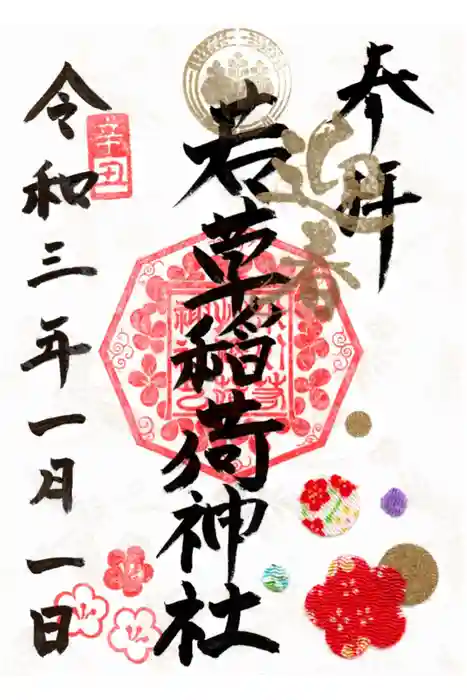 奉拝
迎春
若草稲荷神社
辛丑
令和三年一月一日